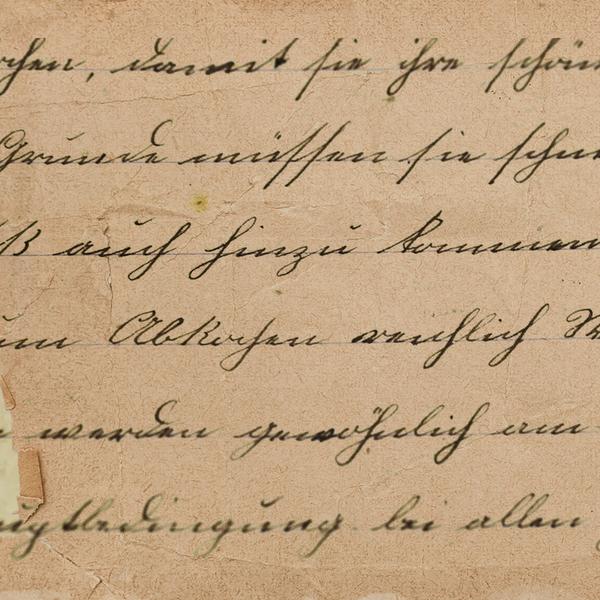 ochen, damit sie ihre schön
Grunde müssen sie schne
ß auch hinzu kommen
um Abkochen reichlich W
werden gewöhnlich am
auptbedingung bei allen